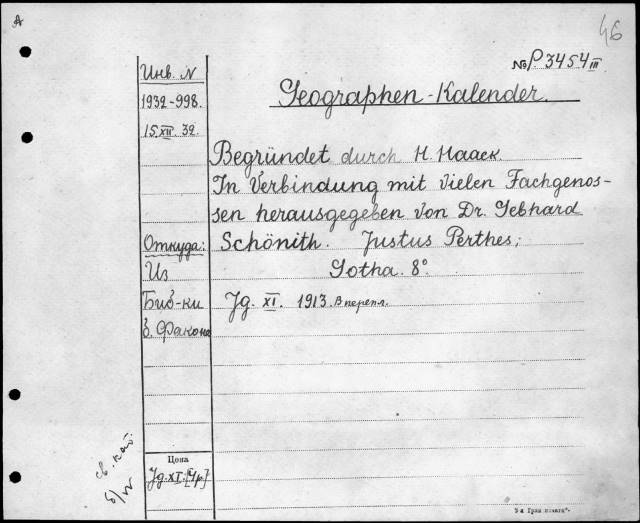 A
46
№ P. 3454 III
Инв. N
1932-998.
15.XII.32.
Geographen-Kalender.
Begründet durch H. Haack.
In Verbindung mit vielen Fachgenos-
sen herausgegeben von Dr. Gebhard
Schönith. Justus Perthes;
Gotha. 8°.
Jg. XI. 1913. В перепл.
Откуда:
Из
Биб-ки
б. Факона
Цена
Jg. XI. [4 р.]
св. кат.